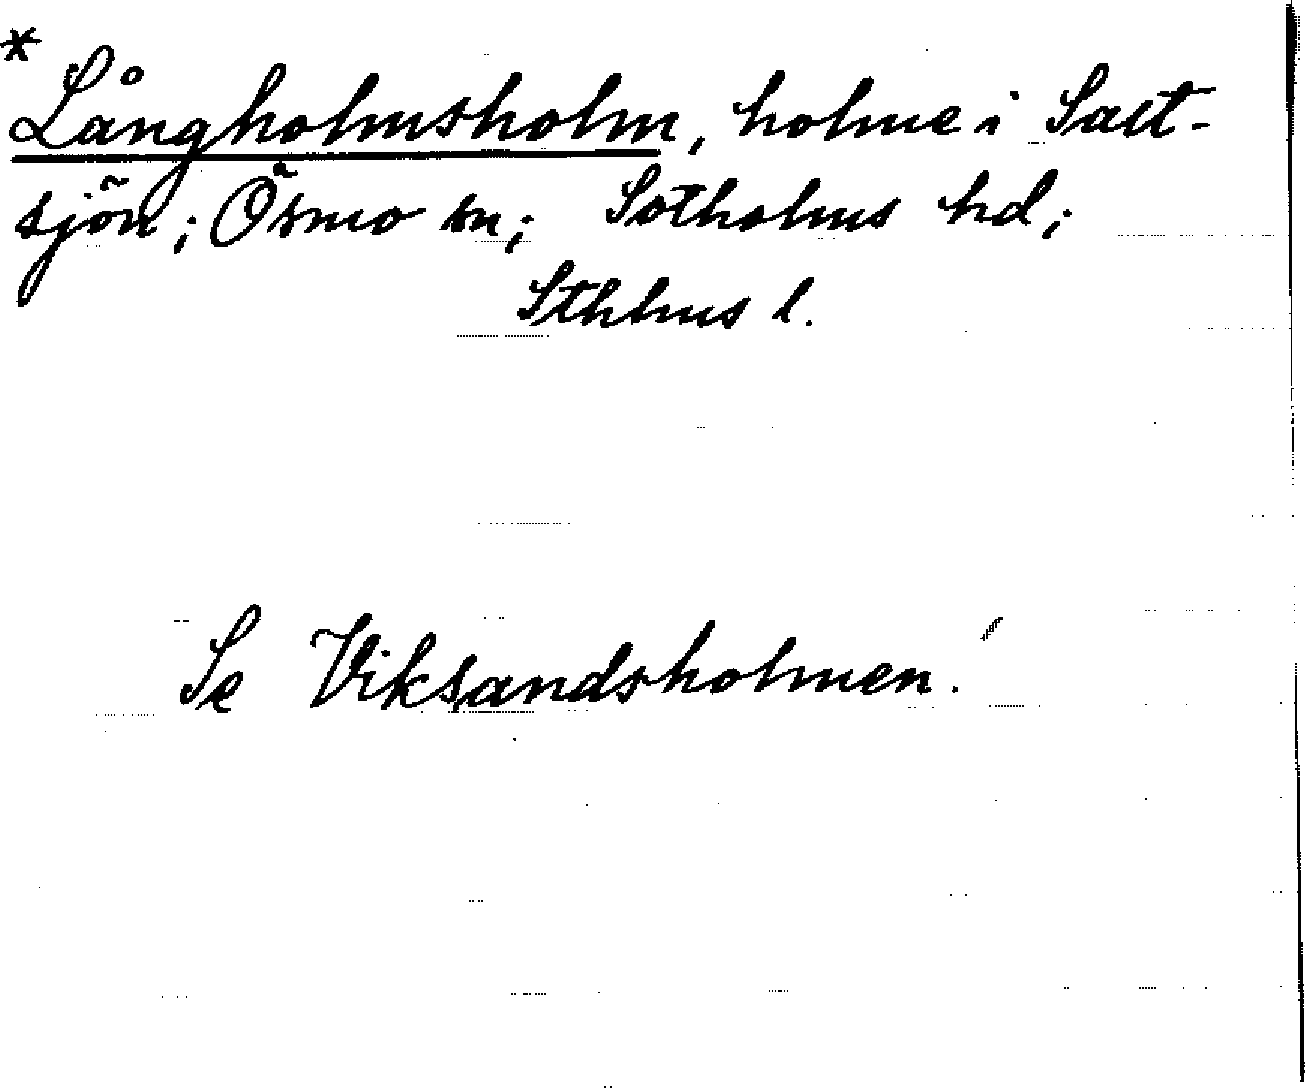 *
Långholmsholm, holme i Salt-
sjön; Ösmo sn; Sotholms hd;
Sthlms l.
Se Viksandsholmen.